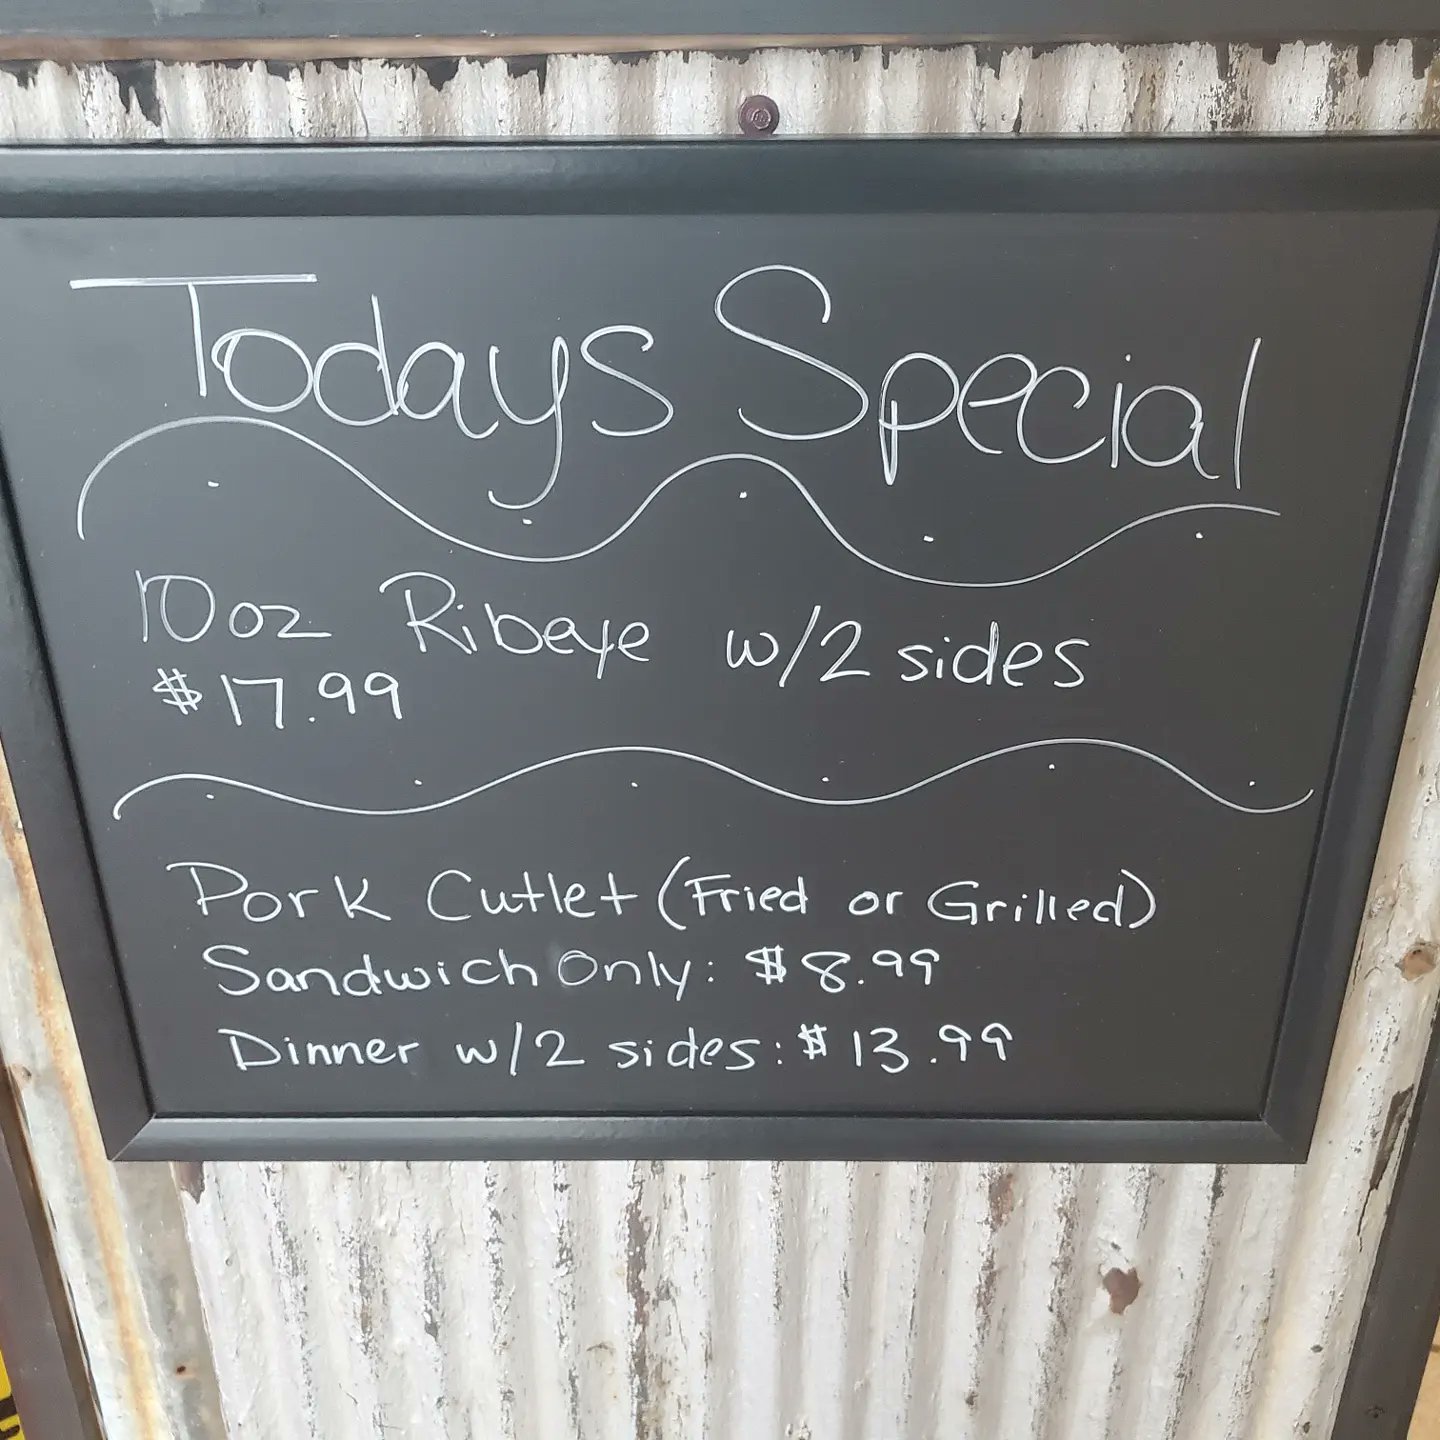 Todays Special
10 oz Ribeye w/2 sides
$17.99
Pork Cutlet (Fried or Grilled)
Sandwich Only: $8.99
Dinner w/2 sides: $13.99